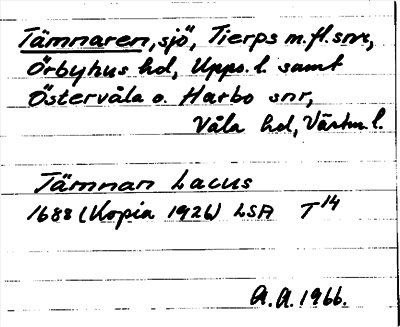 Tämnaren, sjö, Tierps m.fl. snr,
Örbyhus hd, Upps. l. samt
Östervåla o. Harbo snr,
Våla hd, Västm. l.
Tämnan Lacus
1688 (Kopia 1926) LSA T 14
A.A. 1966.